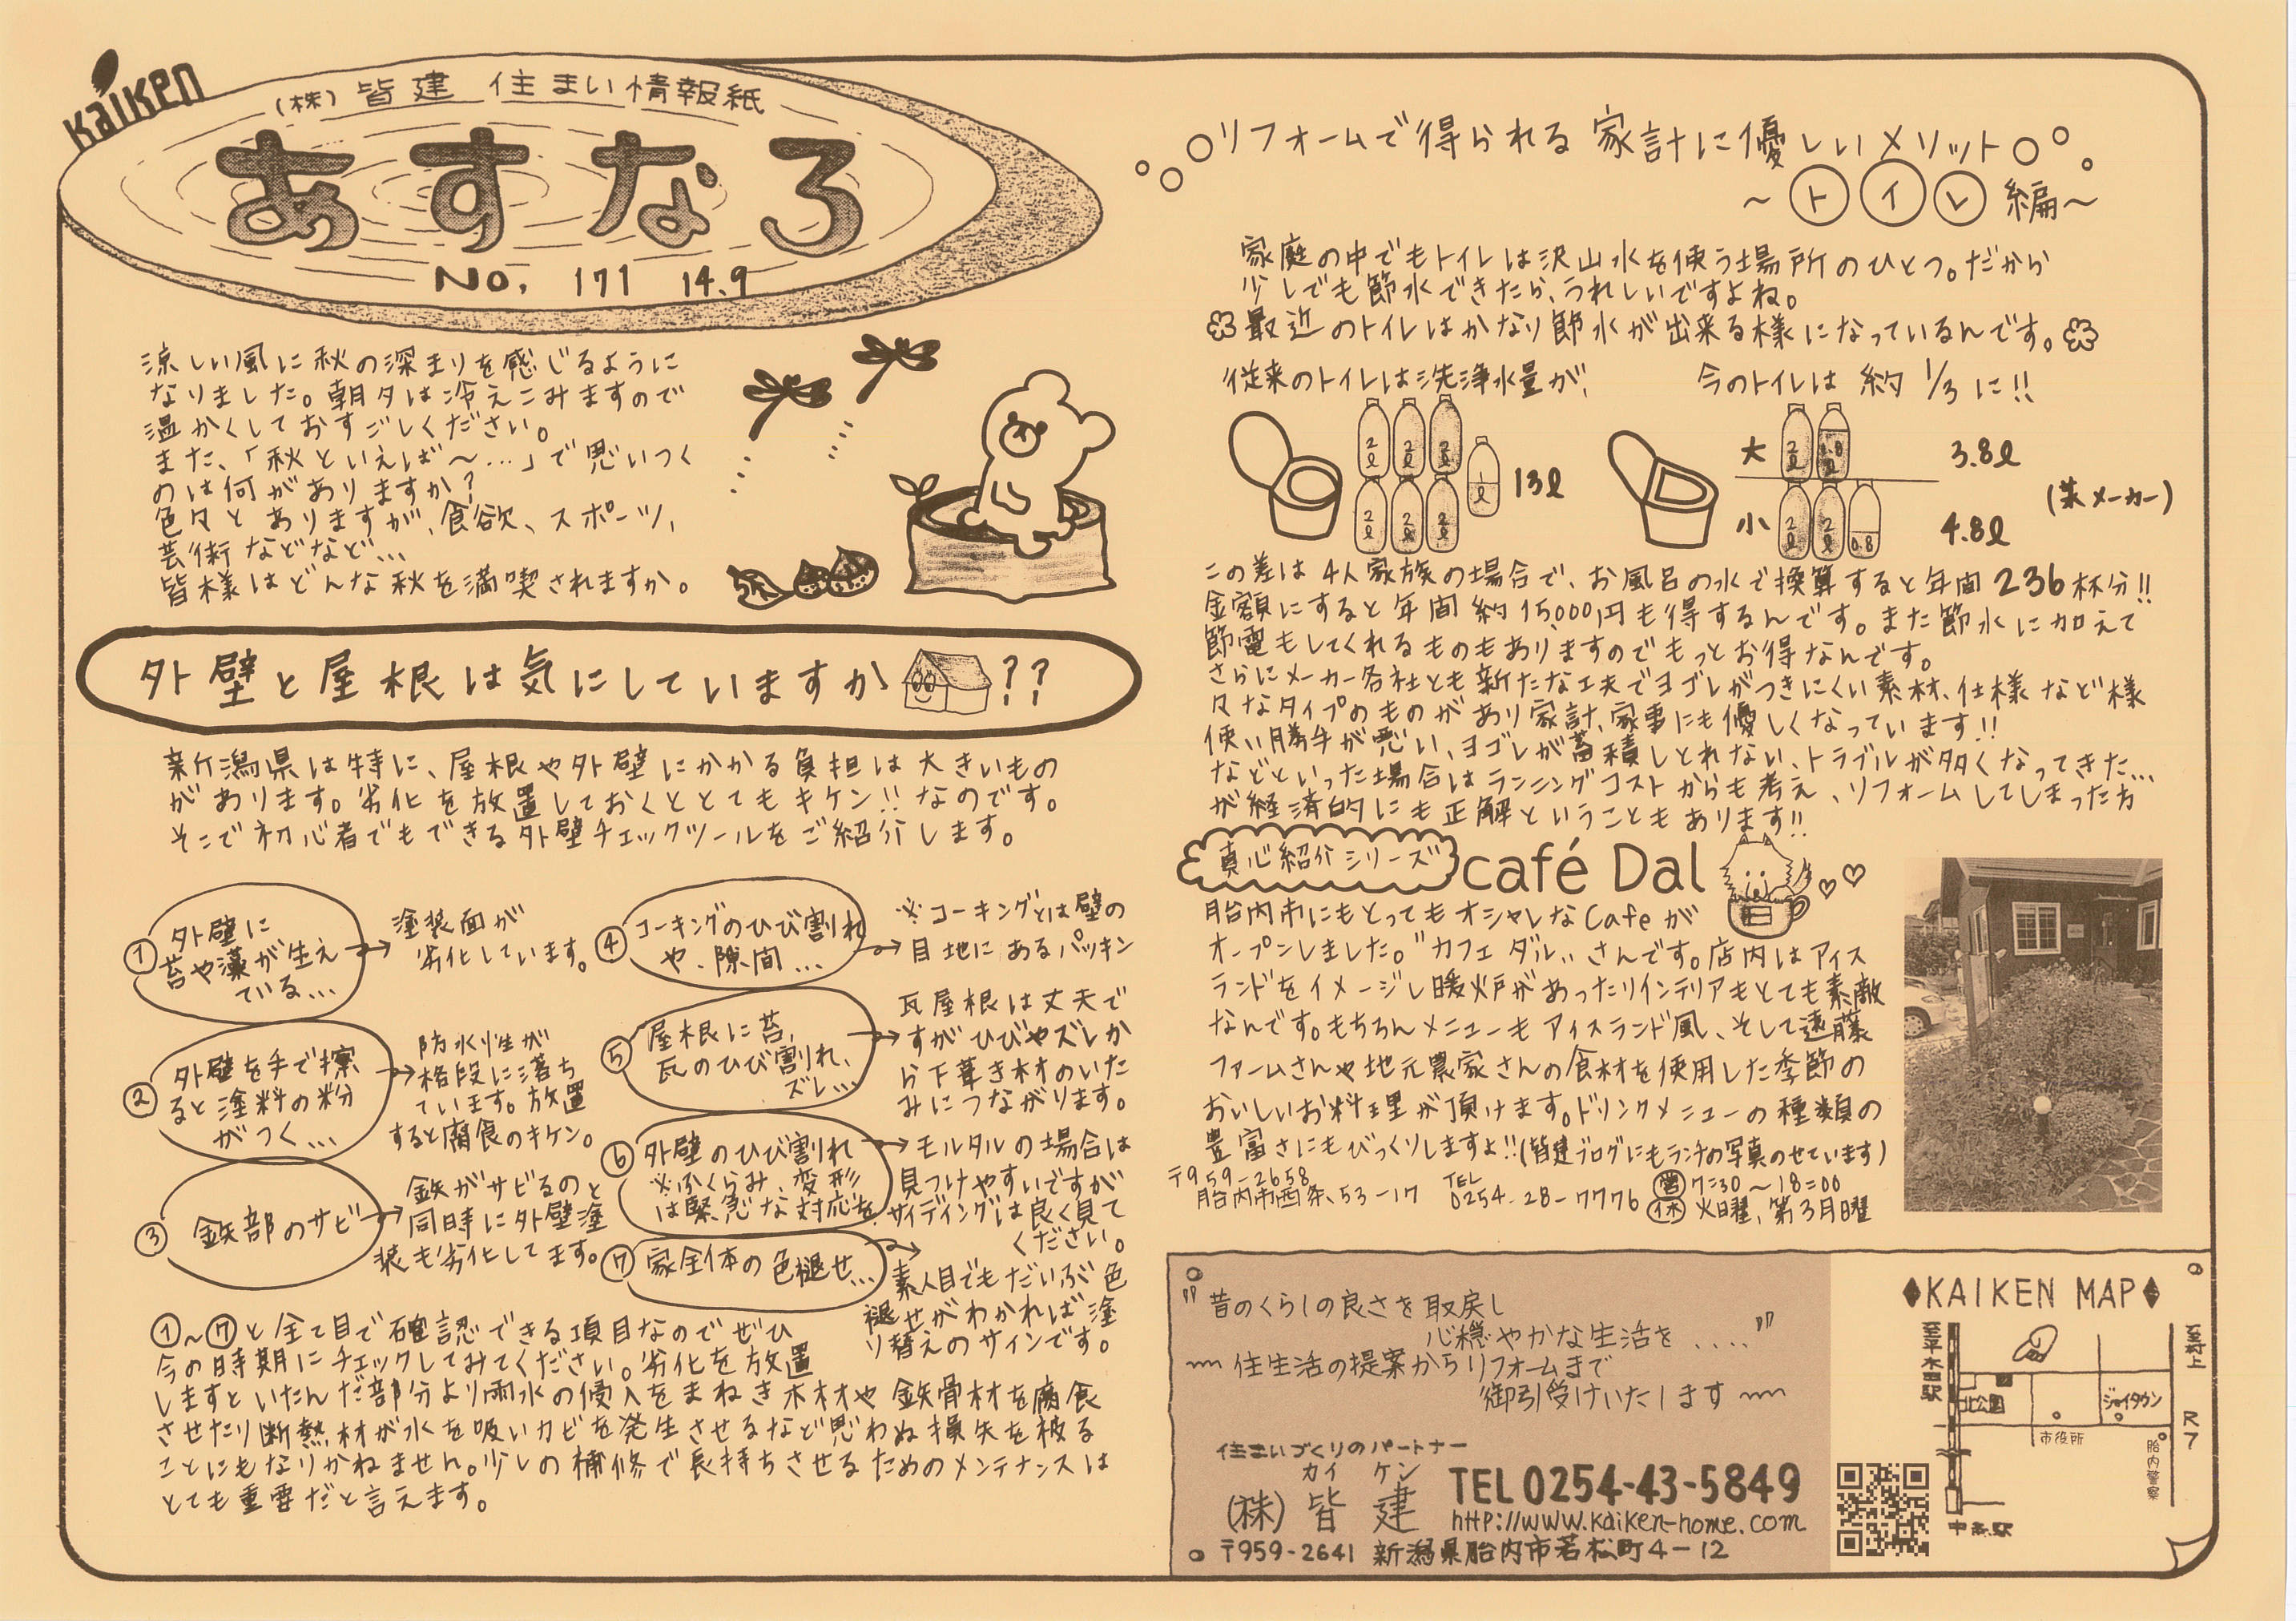 Kaiken
(株)皆建 住まい情報紙
あすなろ
No. 171 14.9
涼しい風に秋の深まりを感じるように
なりました。朝夕は冷えこみますので
温かくしておすごしください。
また、「秋といえば〜…」で思いつく
のは何がありますか?
色々とありますが、食欲、スポーツ、
芸術などなど…
皆様はどんな秋を満喫されますか。
外壁と屋根は気にしていますか??
新潟県は特に、屋根や外壁にかかる負担は大きいもの
があります。劣化を放置しておくととてもキケン!!なのです。
そこで初心者でもできる外壁チェックツールをご紹介します。
① 外壁に
苔や藻が生え
ている…
塗装面が
劣化しています。
② 外壁を手で擦
ると塗料の粉
がつく…
防水性が
格段に落ち
ています。放置
すると腐食のキケン。
③ 鉄部のサビ
鉄がサビるのと
同時に外壁塗
装も劣化してます。
④ コーキングのひび割れ
や、隙間…
※コーキングとは壁の
目地にあるパッキン
⑤ 屋根に苔、
瓦のひび割れ、
ズレ…
瓦屋根は丈夫で
すがひびやズレか
ら下葺き材のいた
みにつながります。
⑥ 外壁のひび割れ
※ふくらみ、変形
は緊急な対応を
モルタルの場合は
見つけやすいですが
サイディングは良く見て
ください。
⑦ 家全体の色褪せ…
素人目でもだいぶ色
褪せがわかれば塗
り替えのサインです。
①〜⑦と全て目で確認できる項目なのでぜひ
今の時期にチェックしてみてください。劣化を放置
しますといたんだ部分より雨水の侵入をまねき木材や鉄骨材を腐食
させたり断熱材が水を吸いカビを発生させるなど思わぬ損失を被る
ことにもなりかねません。少しの補修で長持ちさせるためのメンテナンスは
とても重要だと言えます。
リフォームで得られる家計に優しいメリット
〜トイレ編〜
家庭の中でもトイレは沢山水を使う場所のひとつ。だから
少しでも節水できたら、うれしいですよね。
最近のトイレはかなり節水が出来る様になっているんです。
従来のトイレは洗浄水量が、
今のトイレは 約1/3に!!
2ℓ 2ℓ 2ℓ
2ℓ 2ℓ 2ℓ
1ℓ
13ℓ
大 2ℓ 1.8ℓ 3.8ℓ
小 2ℓ 2ℓ 0.8 4.8ℓ
(某メーカー)
この差は4人家族の場合で、お風呂の水で換算すると年間236杯分!!
金額にすると年間約15,000円も得するんです。また節水に加えて
節電もしてくれるものもありますのでもっとお得なんです。
さらにメーカー各社とも新たな工夫でヨゴレがつきにくい素材、仕様など様
々なタイプのものがあり家計、家事にも優しくなっています!!
使い勝手が悪い、ヨゴレが蓄積しとれない、トラブルが多くなってきた…
などといった場合はランニングコストからも考え、リフォームしてしまった方
が経済的にも正解ということもあります!!
真心紹介シリーズ
café Dal
胎内市にもとってもオシャレなCafeが
オープンしました。"カフェ ダル"さんです。店内はアイス
ランドをイメージし暖炉があったりインテリアもとても素敵
なんです。もちろんメニューもアイスランド風、そして遠藤
ファームさんや地元農家さんの食材を使用した季節の
おいしいお料理が頂けます。ドリンクメニューの種類の
豊富さにもびっくりしますよ!!(皆建ブログにもランチの写真のせています)
〒959-2658
胎内市西条53-17
TEL
0254-28-7776
営 7:30〜18:00
休 火曜、第3月曜
"昔のくらしの良さを取戻し
心穏やかな生活を ...."
〜住生活の提案からリフォームまで
御引受けいたします〜
住まいづくりのパートナー
カイ ケン
(株)皆建
TEL 0254-43-5849
http://www.kaiken-home.com
〒959-2641 新潟県胎内市若松町4-12
◆KAIKEN MAP◆
至平木田駅
至村上
北公園
ジョイタウン
市役所
R7
胎内警察
中条駅